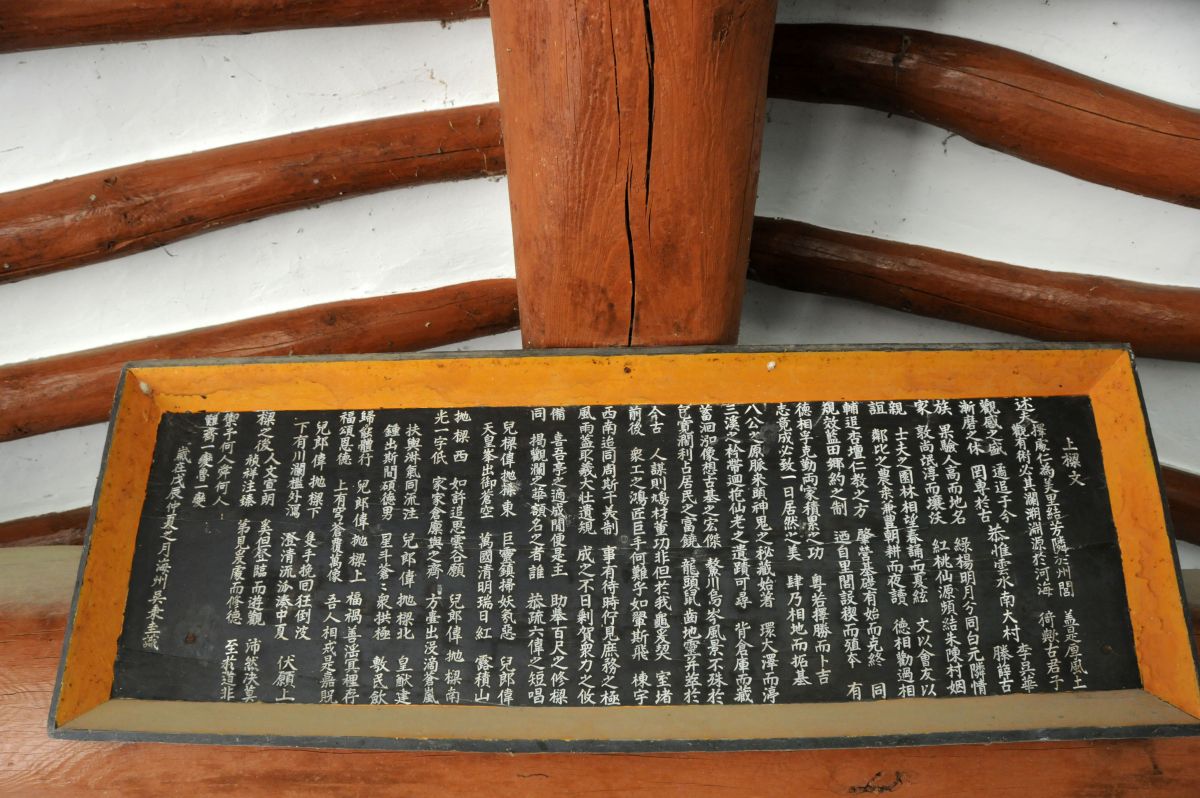 上樑文
擇處仁為美里結芳隣於州閭 蓋是原風土
述 觀有術必其瀾溯淵源於河海 猗歟古君子
觀感之盛 遹追于今 恭惟雲水南大村 李吳華
漸磨之休 罔專於古 勝嶂古
族 果驗人高而地名 綠楊明月分同白元隣情
家 敦高俗淳而 紅桃仙源須結朱陳村姻
親 士夫之園林相望春誦而夏絃 文以會友以
誼 鄰比之農桑兼畳朝耕而夜讀 德相勸過相
輔 追古壇仁教之方 肇營基礎有始而克終 同
規 效藍田鄉約之制 迺自里閭設稧而殖本 有
德相孚克勤兩家積累之功 奧若擇勝而卜吉
志竟成必致一日居然之美 肆乃相地而拓基
八公之原脈來頭神鬼之秘藏始著 環大澤而渟
三溪之枌帶迴抱仙老之遺蹟可尋 背倉庫而藏
蓄 洄泖像想古基之宏傑 鰲川島岑風景不殊於
色 寬澗利占居民之富饒 龍頭鼠齒地靈并萃於
今古 人謀則鳩材董功非但於我龜爰契 室堵
前後 衆工之鴻匠巨手何難孚如翬斯飛 棟宇
西南追同周斯干美制 事有待時行見庶務之極
風雨蓋取羲大壯遺規 成之不日剩賀衆力之攸
備 喜吾亭之適成間便是主 助舉百尺之修樑
同 揭觀瀾之華額名之者誰 恭疏六偉之短唱
兒樑偉拋樑東 巨靈鎮掃妖氛息 兒郎偉
天皇峯出御蒼空 萬國清明瑞日紅 露積山
拋樑西 如許追思雲谷願 兒郎偉 拋樑南
光一字低 家家倉廩與之齊 方臺出没滴蒼嵐
扶輿淑氣同流注 兒郎偉 拋樑北 皇猷建
鍾出斯間碩德男 星斗蒼蒼衆拱極 敷民飲
歸飽體行 兒郎偉 拋樑上 福禍善淫冝裡存
福頌恩德 上有穹蒼覆萬像 吾人相戒是嘉貺
兒郎偉 拋樑下 隻手挽回狂倒波 伏願上
下有川瀾檻外瀉 澄清流洽湊中夏
樑之後 人文宣朗 奚但登臨而遊觀 沛然決莫
禎祥注臻 第見處慶而修德 至若道非
禦 于何人 舜何人
難齊一變魯一變
歲在戊辰仲夏之月海州吳秉 識